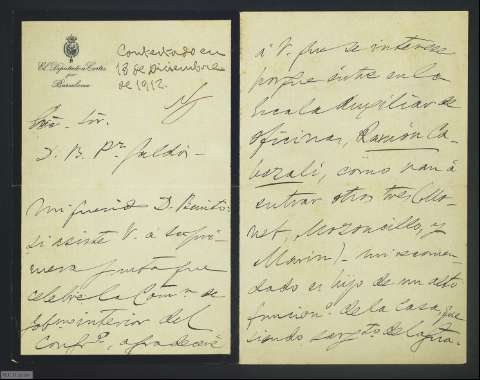 El Diputado a Cortes
por
Barcelona
Contestado en
18 de Diciembre
de 1912.
Sr.
D. B. Pz. Galdós
Mi querido D. Benito:
Si asiste V. a la pri-
mera junta que
celebre la Comn. de
Gobno interior del
Congro., agradeceré
á V. que se interese
porque entre en la
Escala Auxiliar de
oficinas, Ramón Ca-
, como van á
entrar otros tres (Mo-
net, Mozoncillo, y
Marin) - mi recomen-
dado es hijo de un alto
funcino. de la Casa, que
siendo sargto. de